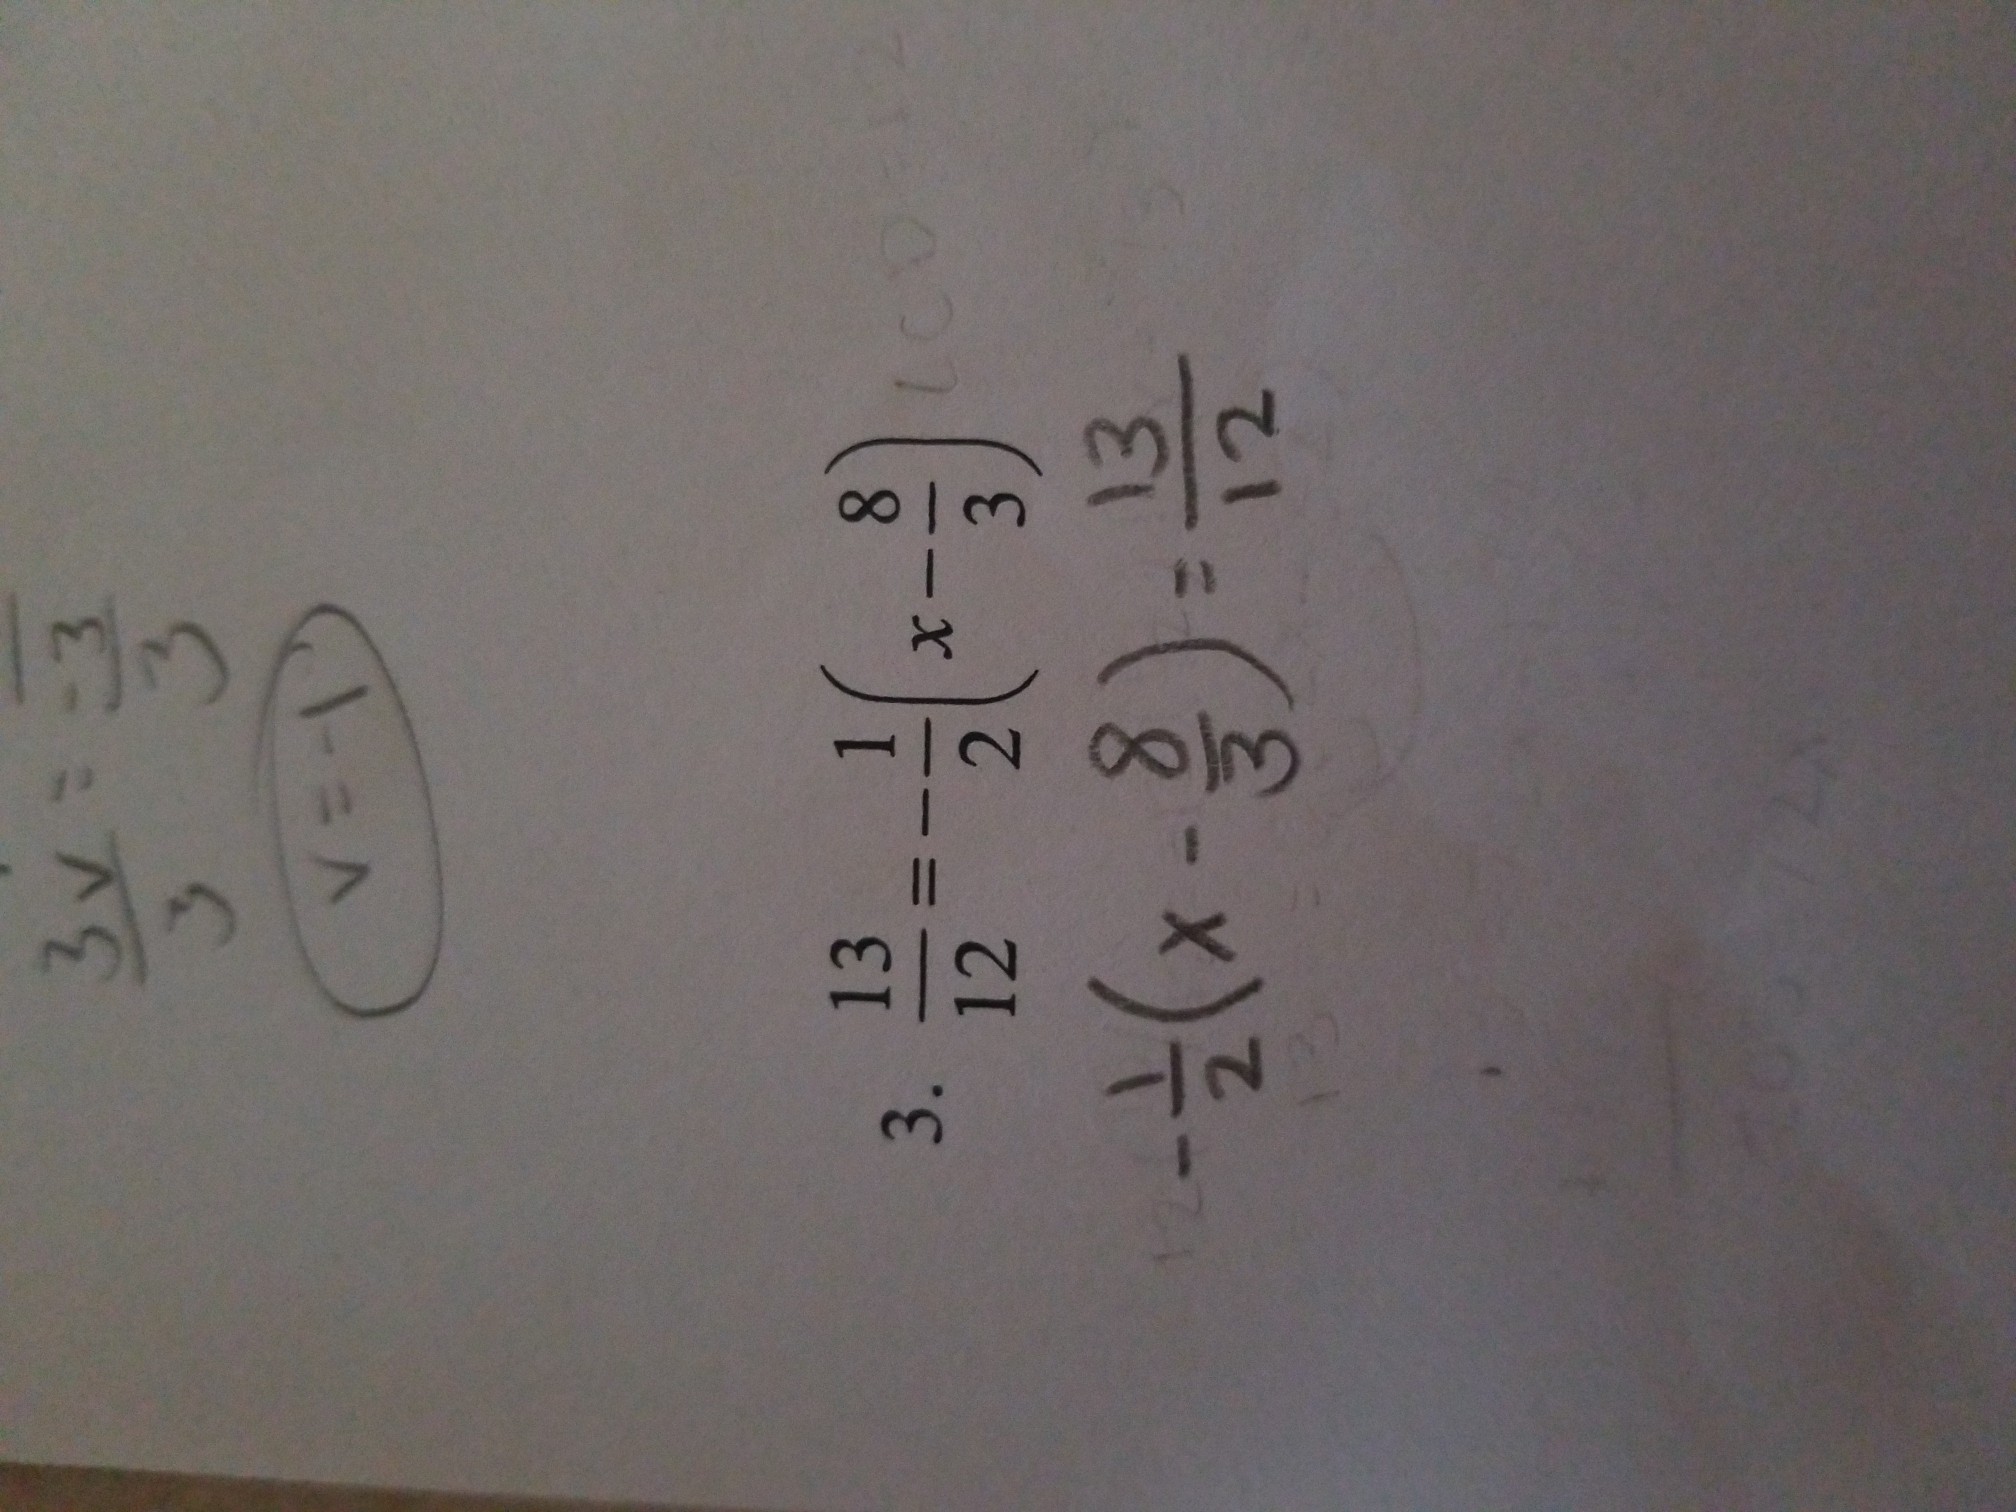 3v/3 = -3/3
v = -1
3. 13/12 = -1/2 (x - 8/3) LCD = 12
-1/2 (x - 8/3) = 13/12